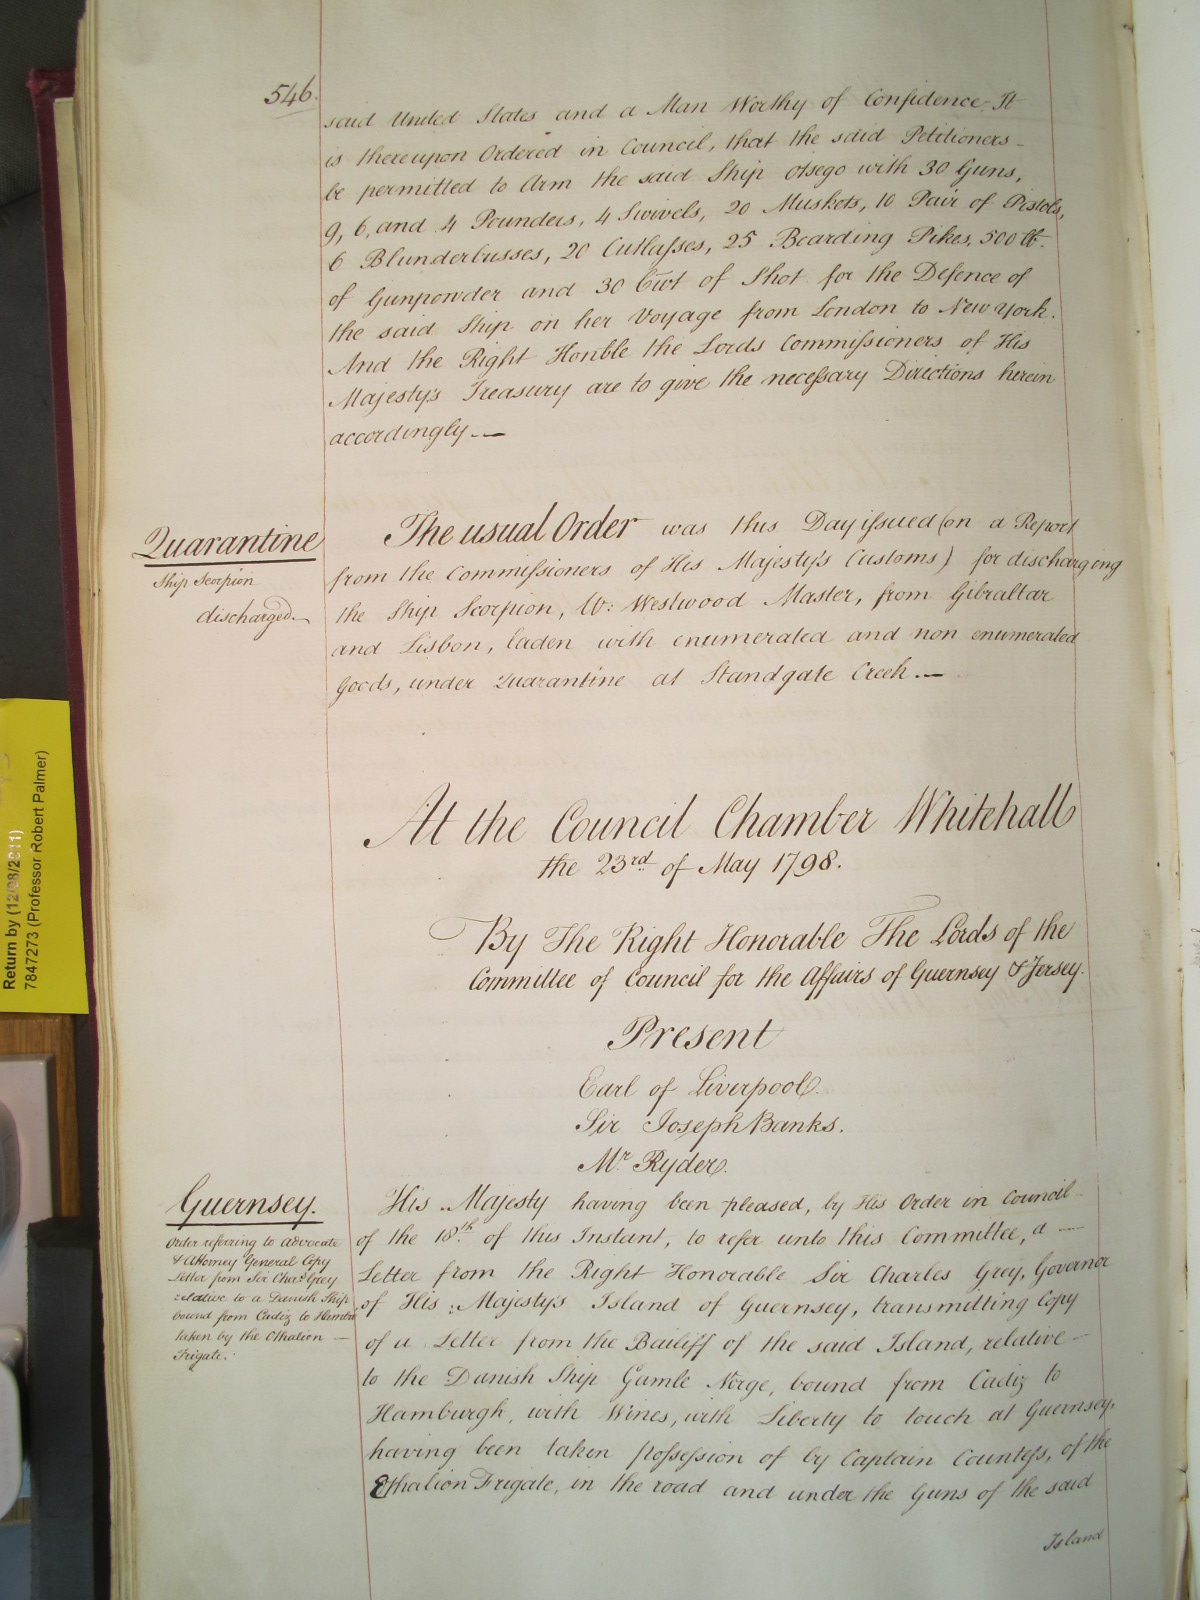 546.
said United States and a Man Worthy of Confidence, It
is thereupon Ordered in Council, that the said Petitioners
be permitted to Arm the said Ship Otsego with 30 Guns,
9, 6, and 4 Pounders, 4 Swivels, 20 Muskets, 10 Pair of Pistols,
6 Blunderbusses, 20 Cutlasses, 25 Boarding Pikes, 500 lb.
of Gunpowder and 30 Cwt of Shot for the Defence of
the said Ship on her Voyage from London to New York.
And the Right Honble the Lords Commissioners of His
Majesty's Treasury are to give the necessary Directions herein
accordingly.—
Quarantine
Ship Scorpion
discharged.
The usual Order was this Day issued (on a Report
from the Commissioners of His Majesty's Customs) for discharging
the Ship Scorpion, W: Westwood Master, from Gibraltar
and Lisbon, laden with enumerated and non enumerated
Goods, under Quarantine at Standgate Creek.—
At the Council Chamber Whitehall
the 23rd of May 1798.
By The Right Honorable The Lords of the
Committee of Council for the Affairs of Guernsey & Jersey.
Present
Earl of Liverpool.
Sir Joseph Banks.
Mr Ryder.
Guernsey.
Order referring to Advocate
& Attorney General Copy
Letter from Sir Chas. Grey
relative to a Danish Ship
bound from Cadiz to Hambro'
taken by the Ethalion —
Frigate.
His Majesty having been pleased, by His Order in Council
of the 18th of this Instant, to refer unto this Committee, a —
Letter from the Right Honorable Sir Charles Grey, Governor
of His Majesty's Island of Guernsey, transmitting Copy
of a Letter from the Bailiff of the said Island, relative
to the Danish Ship Gamle Norge, bound from Cadiz to
Hamburgh, with Wines, with Liberty to touch at Guernsey,
having been taken possession of by Captain Countess, of the
Ethalion Frigate, in the road and under the Guns of the said
Island
Return by (12/08/2011)
7847273 (Professor Robert Palmer)